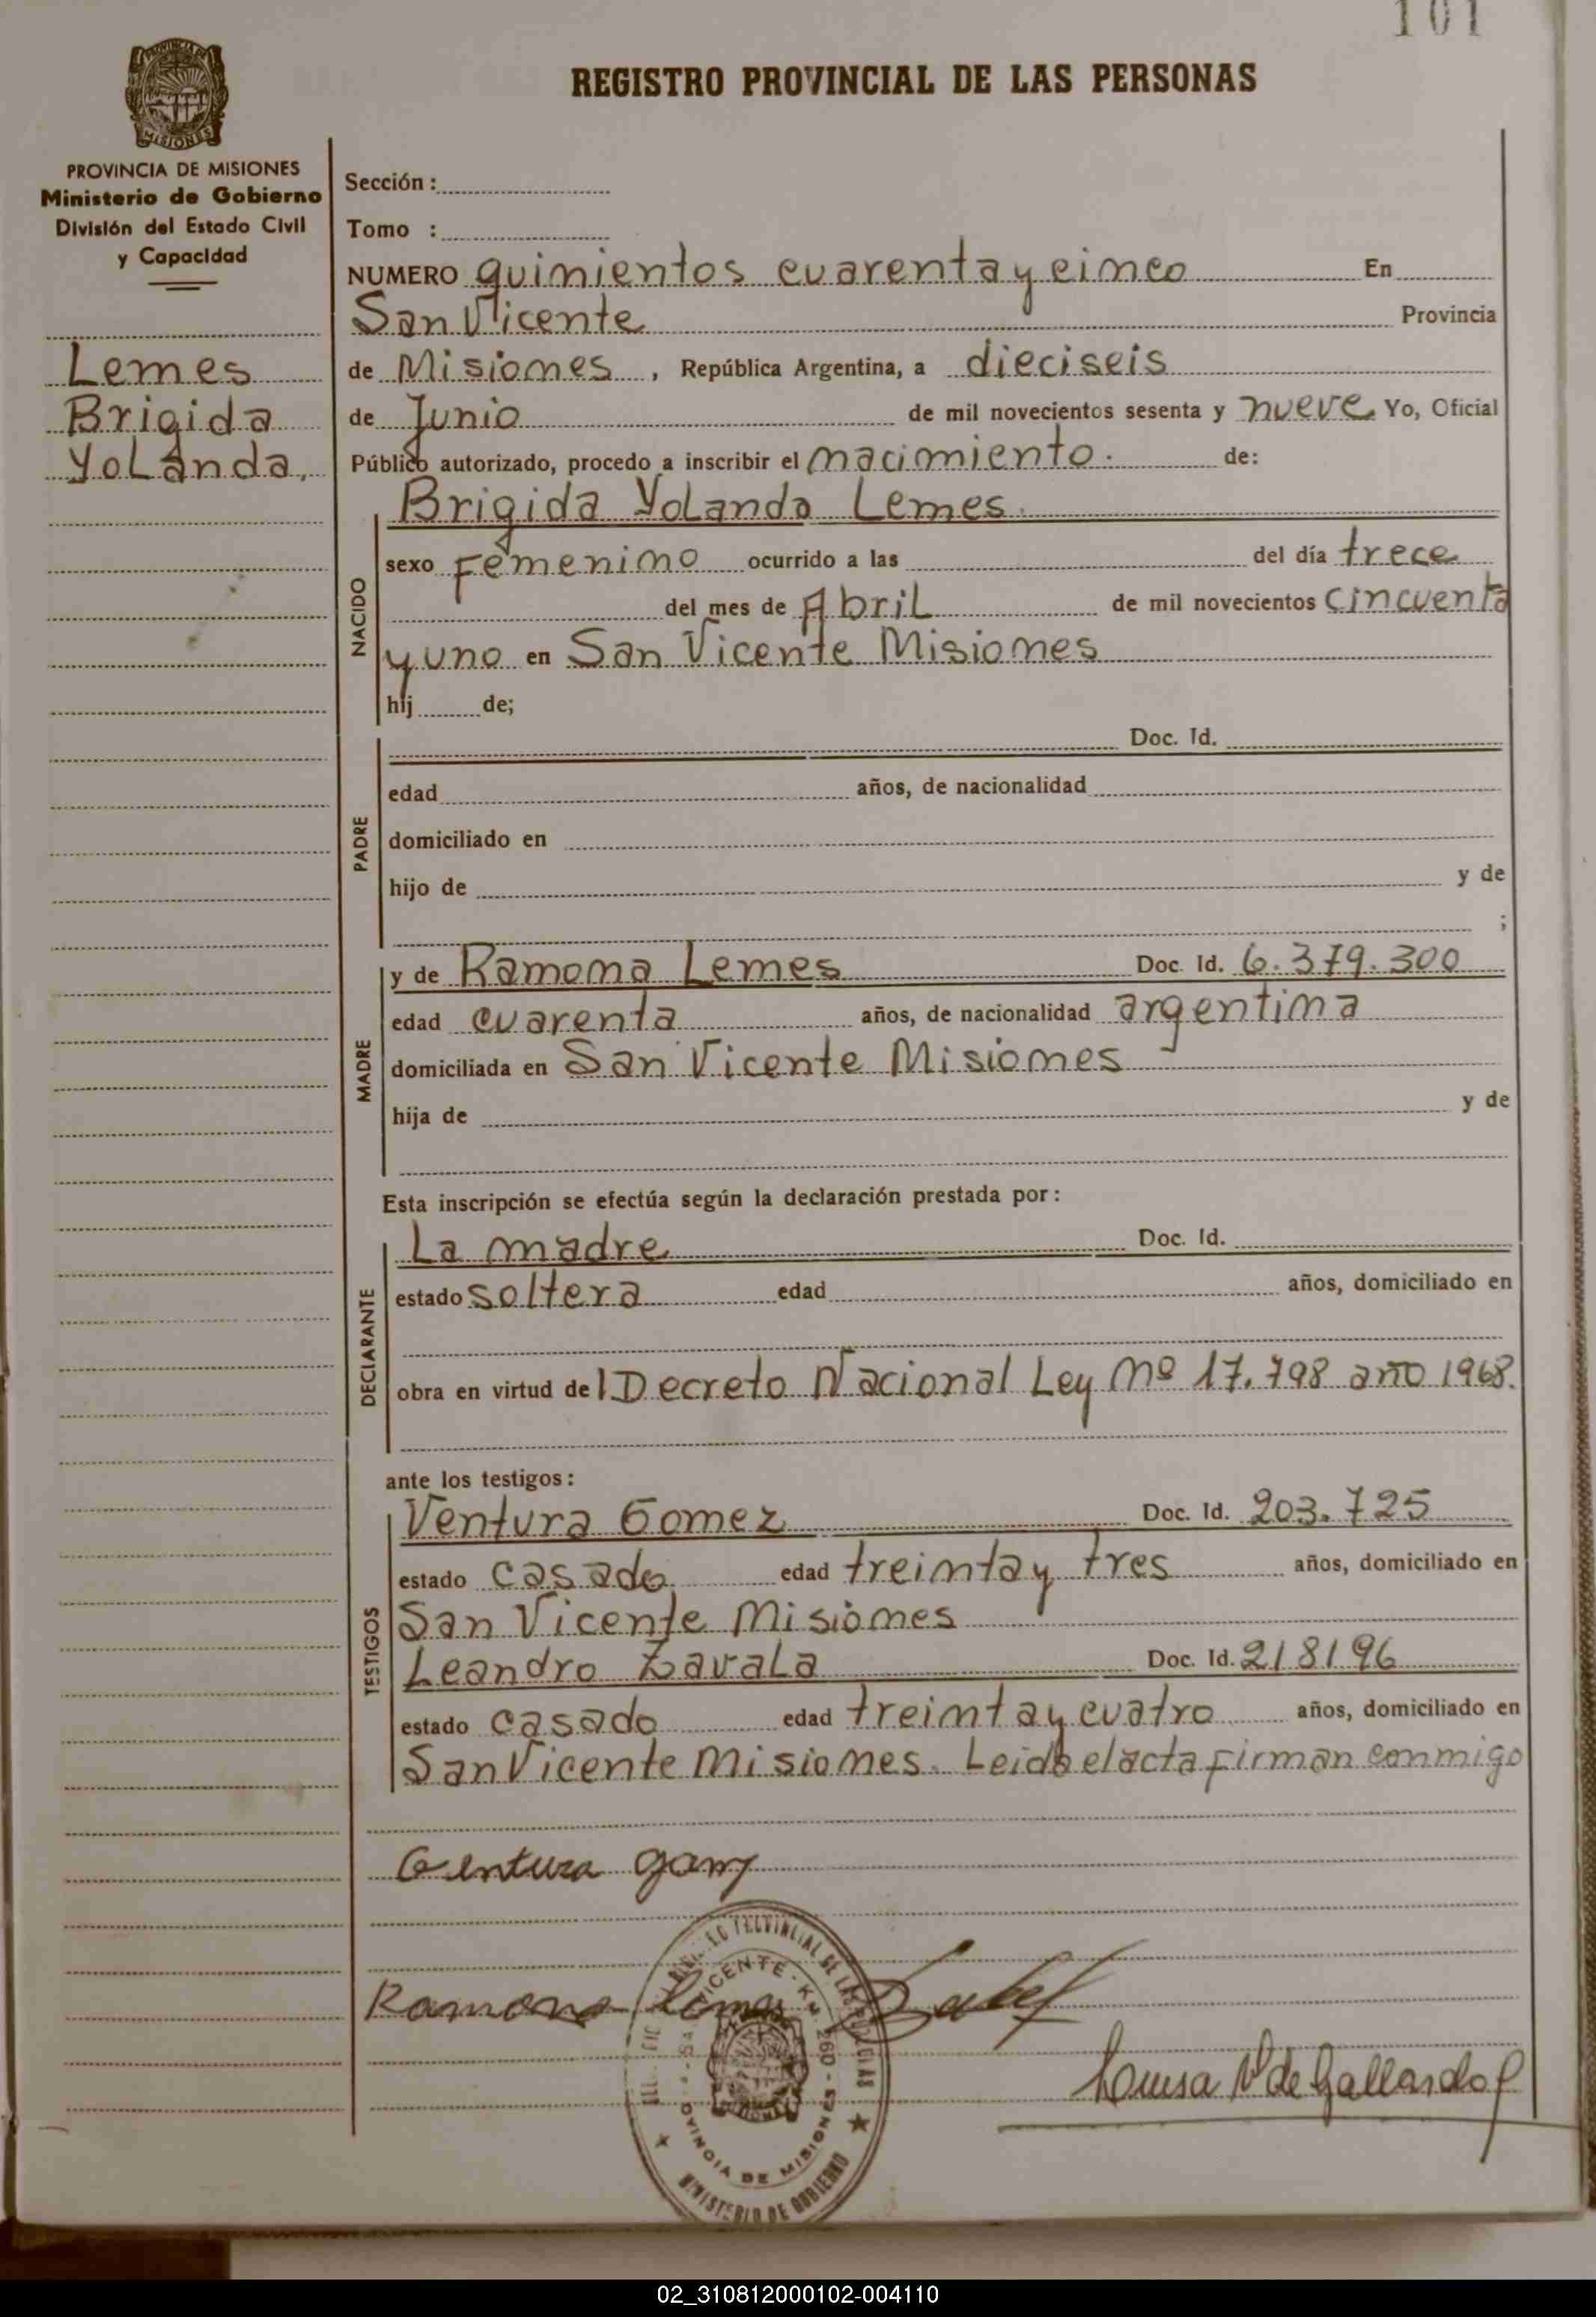 101
REGISTRO PROVINCIAL DE LAS PERSONAS
PROVINCIA DE MISIONES
MISIONES
PROVINCIA DE MISIONES
Ministerio de Gobierno
División del Estado Civil
y Capacidad
Lemes
Brigida
Yolanda,
Sección :
Tomo :
NUMERO quinientos cuarenta y cinco En
San Vicente Provincia
de Misiones , República Argentina, a dieciseis
de Junio de mil novecientos sesenta y nueve Yo, Oficial
Público autorizado, procedo a inscribir el nacimiento. de:
NACIDO
Brigida Yolanda Lemes.
sexo Femenino ocurrido a las del día trece
del mes de Abril de mil novecientos cincuenta
y uno en San Vicente Misiones
hij de;
PADRE
Doc. Id.
edad años, de nacionalidad
domiciliado en
hijo de y de
;
MADRE
y de Ramona Lemes Doc. Id. 6.379.300
edad cuarenta años, de nacionalidad argentina
domiciliada en San Vicente Misiones
hija de y de
Esta inscripción se efectúa según la declaración prestada por :
DECLARANTE
La madre Doc. Id.
estado soltera edad años, domiciliado en
obra en virtud del Decreto Nacional Ley Nº 17.798 año 1968.
ante los testigos :
TESTIGOS
Ventura Gomez Doc. Id. 203.725
estado casado edad treinta y tres años, domiciliado en
San Vicente Misiones
Leandro Zavala Doc. Id. 218196
estado casado edad treinta y cuatro años, domiciliado en
San Vicente Misiones. Leida el acta firman conmigo
Ventura
Ramona Lemes
Luisa V de Gallardo
VICENTE - KM. 260
PROVINCIA DE MISIONES
MINISTERIO DE GOBIERNO
02_310812000102-004110